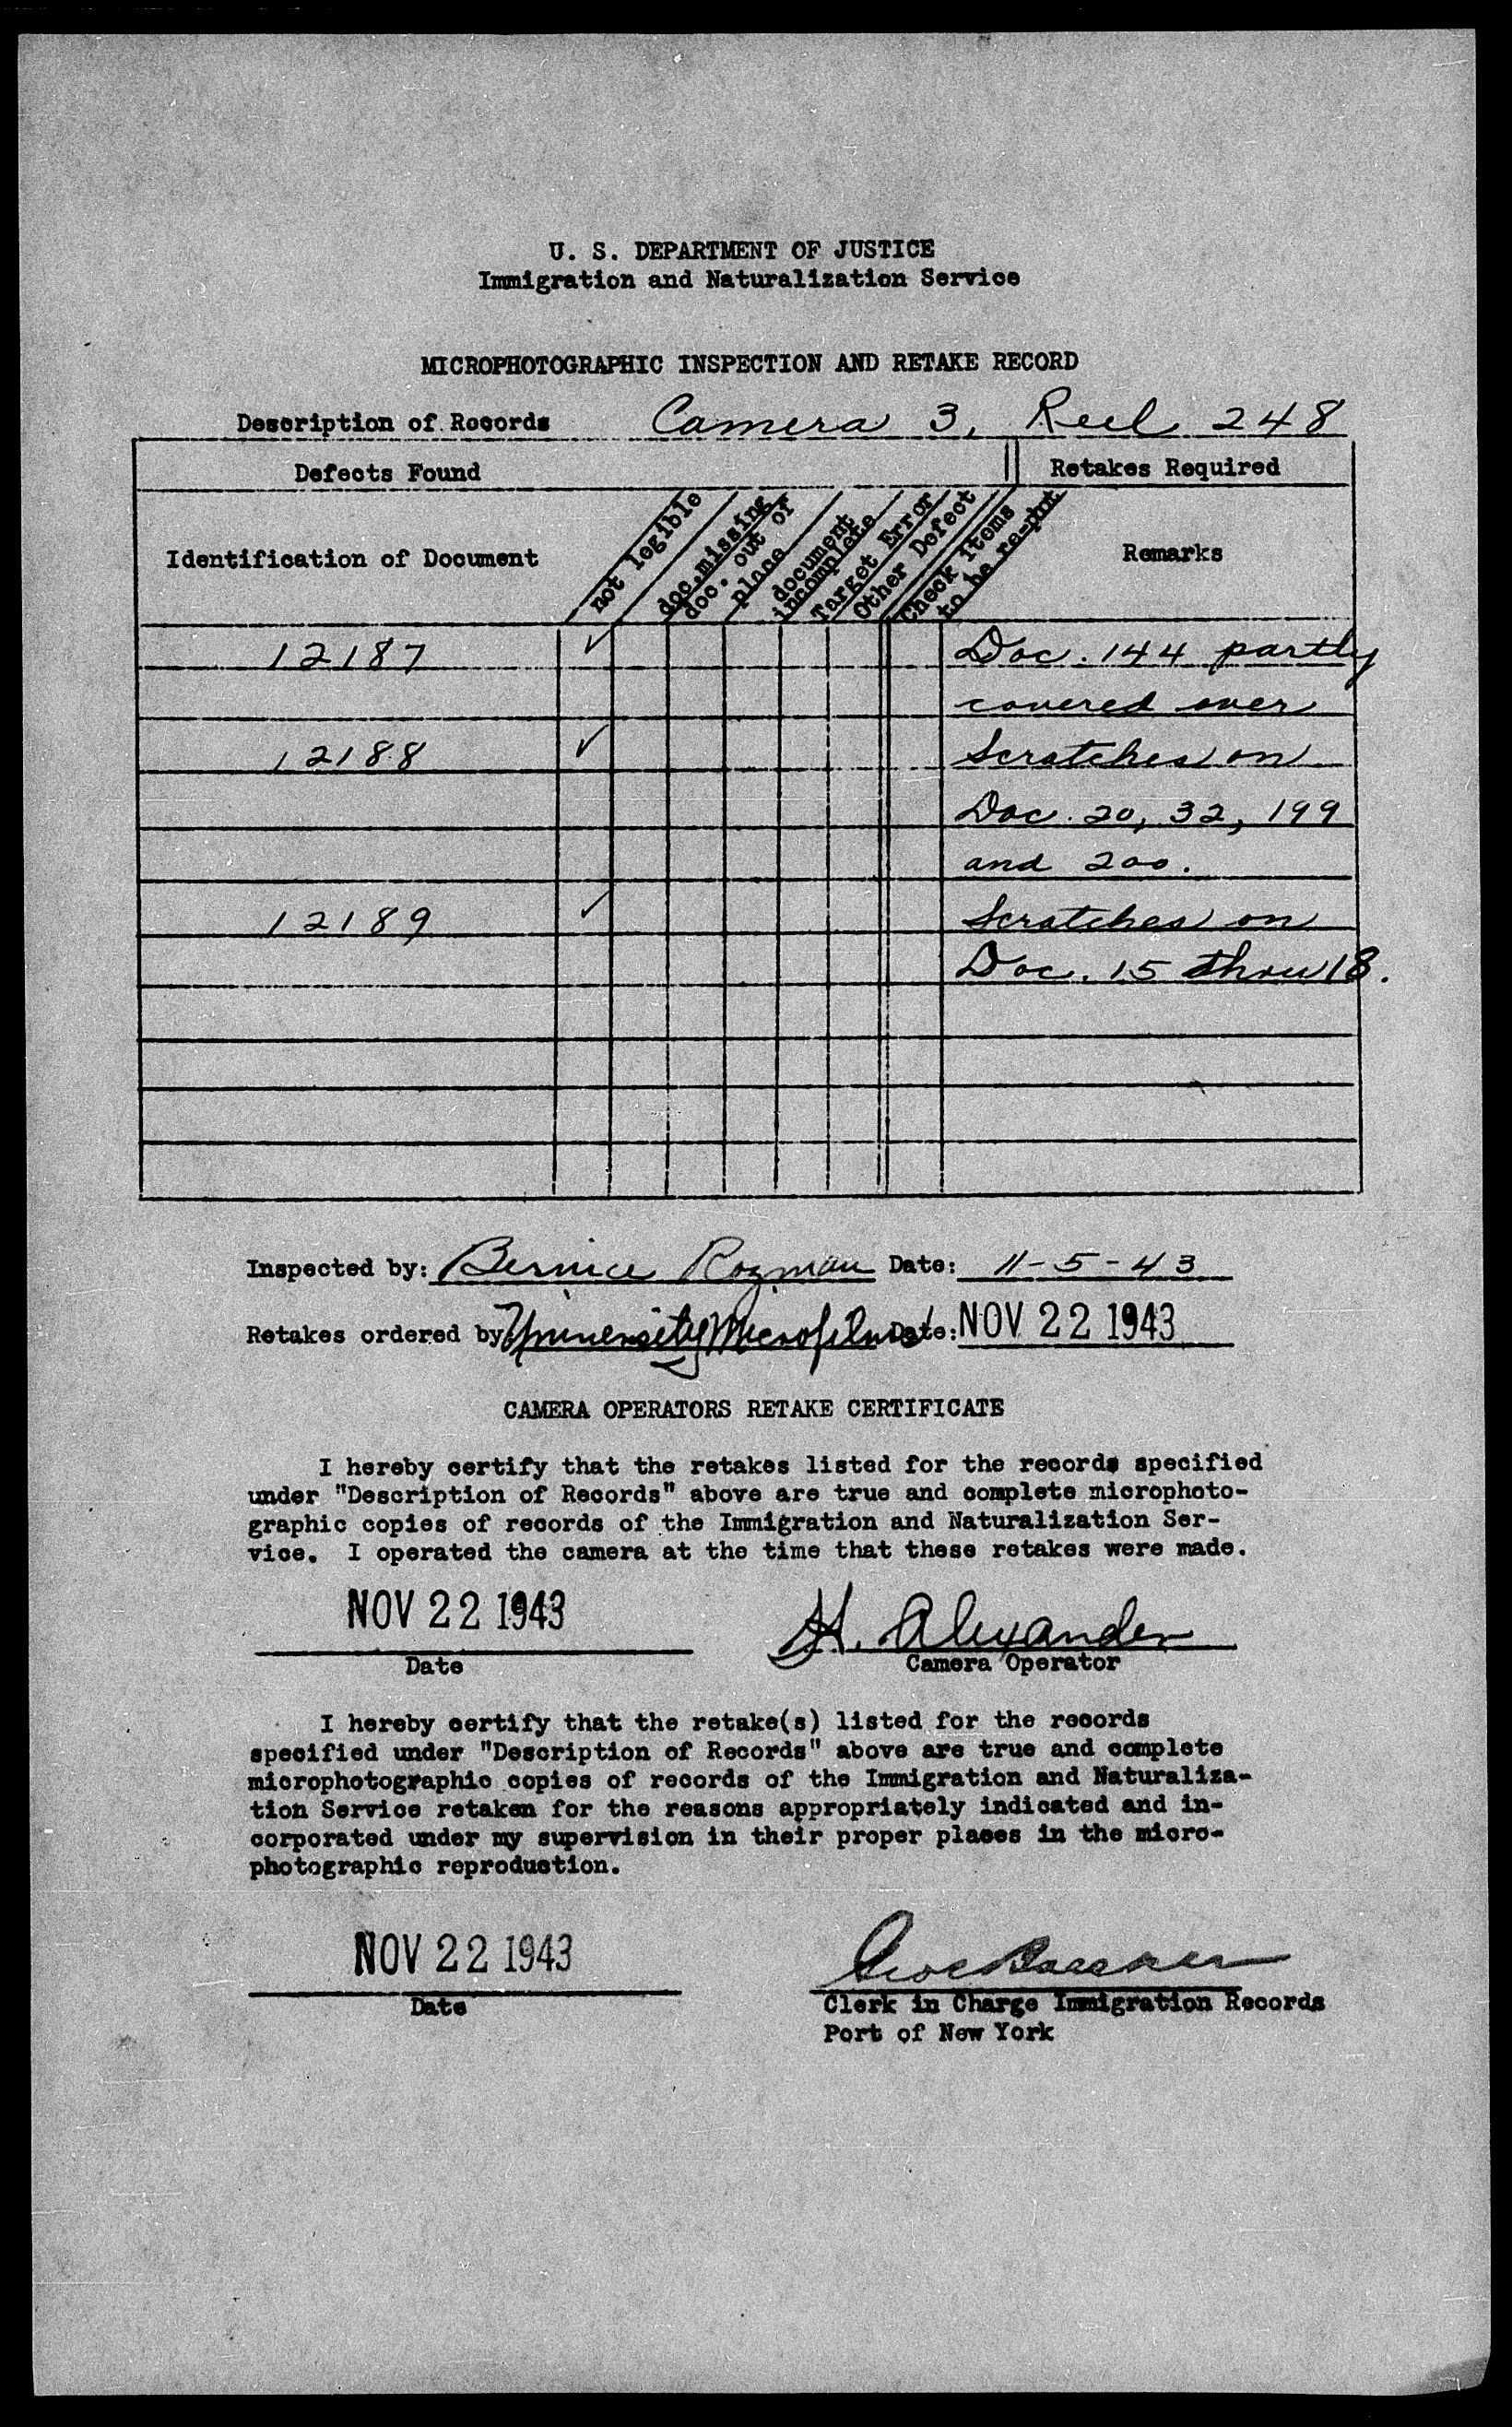 U. S. DEPARTMENT OF JUSTICE
Immigration and Naturalization Service
MICROPHOTOGRAPHIC INSPECTION AND RETAKE RECORD
Description of Records Camera 3, Reel 248
Defects Found Retakes Required
Identification of Document
not legible
doc. missing
doc. out of
place
document
incomplete
Target Error
Other Defect
Check items
to be re-phot
Remarks
12187 ✓ Doc. 144 partly
covered over
12188 ✓ Scratches on
Doc. 20, 32, 199
and 200.
12189 ✓ Scratches on
Doc. 15 thru 18.
Inspected by: Bernice Rozman Date: 11-5-43
Retakes ordered by: University Microfilms Date: NOV 22 1943
CAMERA OPERATORS RETAKE CERTIFICATE
I hereby certify that the retakes listed for the records specified
under "Description of Records" above are true and complete microphoto-
graphic copies of records of the Immigration and Naturalization Ser-
vice. I operated the camera at the time that these retakes were made.
NOV 22 1943 H. Alexander
Date Camera Operator
I hereby certify that the retake(s) listed for the records
specified under "Description of Records" above are true and complete
microphotographic copies of records of the Immigration and Naturaliza-
tion Service retaken for the reasons appropriately indicated and in-
corporated under my supervision in their proper places in the micro-
photographic reproduction.
NOV 22 1943
Date Clerk in Charge Immigration Records
Port of New York